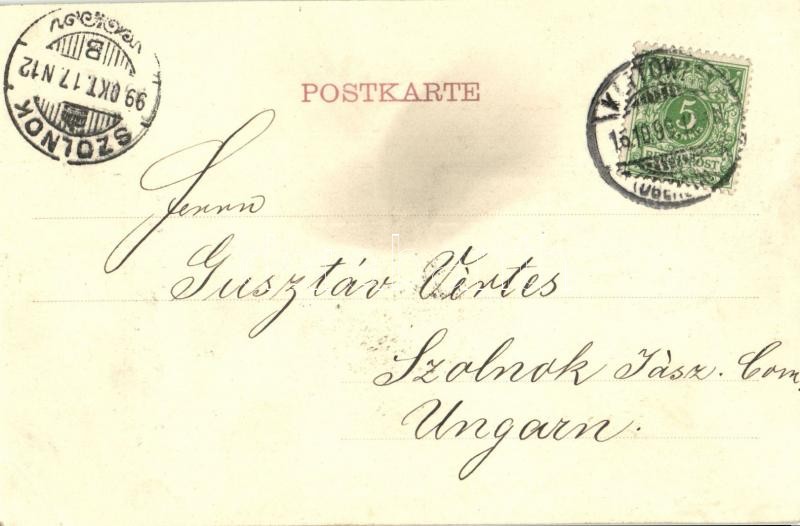 SZOLNOK
99 OKT. 17. N12
B
POSTKARTE
5
REICHSPOST
Herrn
Gusztáv Vèrtes
Szolnok Jàsz. Com.
Ungarn.